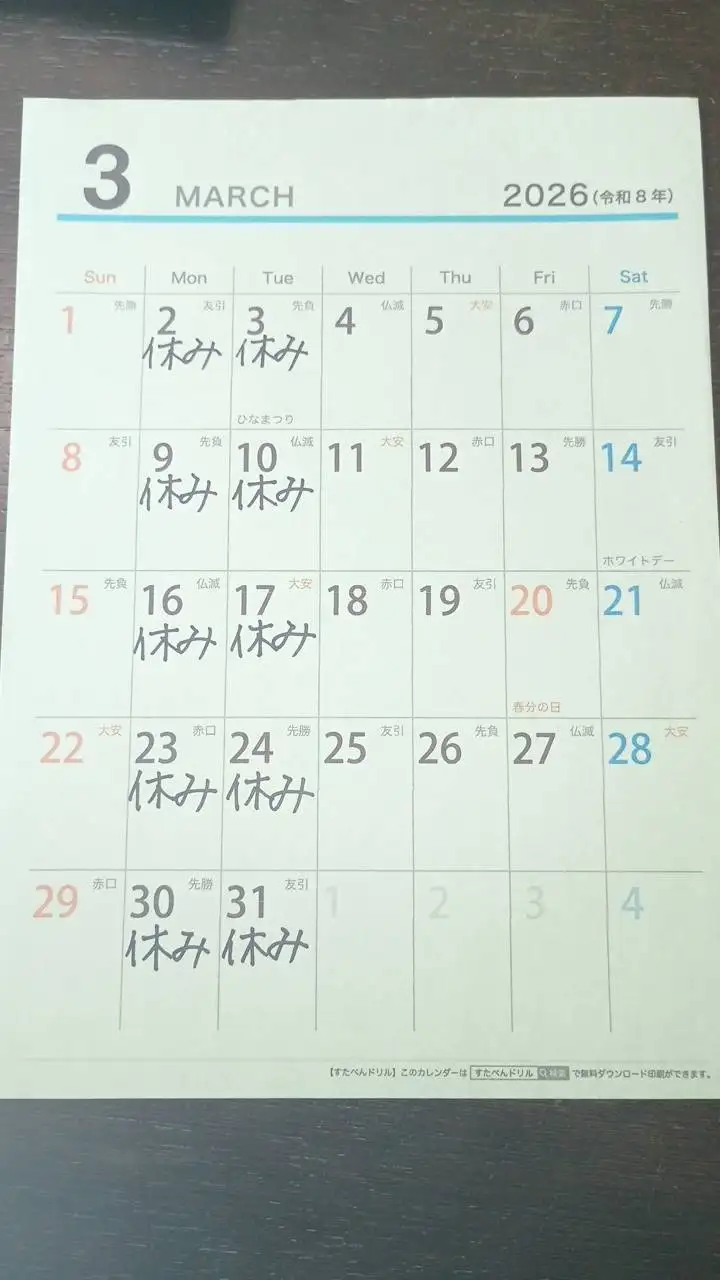 3 MARCH 2026(令和8年)
Sun Mon Tue Wed Thu Fri Sat
1 先勝 2 友引 3 先負 4 仏滅 5 大安 6 赤口 7 先勝
休み 休み
ひなまつり
8 友引 9 先負 10 仏滅 11 大安 12 赤口 13 先勝 14 友引
休み 休み
ホワイトデー
15 先負 16 仏滅 17 大安 18 赤口 19 友引 20 先負 21 仏滅
休み 休み
春分の日
22 大安 23 赤口 24 先勝 25 友引 26 先負 27 仏滅 28 大安
休み 休み
29 赤口 30 先勝 31 友引 1 2 3 4
休み 休み
【すたぺんドリル】このカレンダーは すたぺんドリル 検索 で無料ダウンロード印刷ができます。